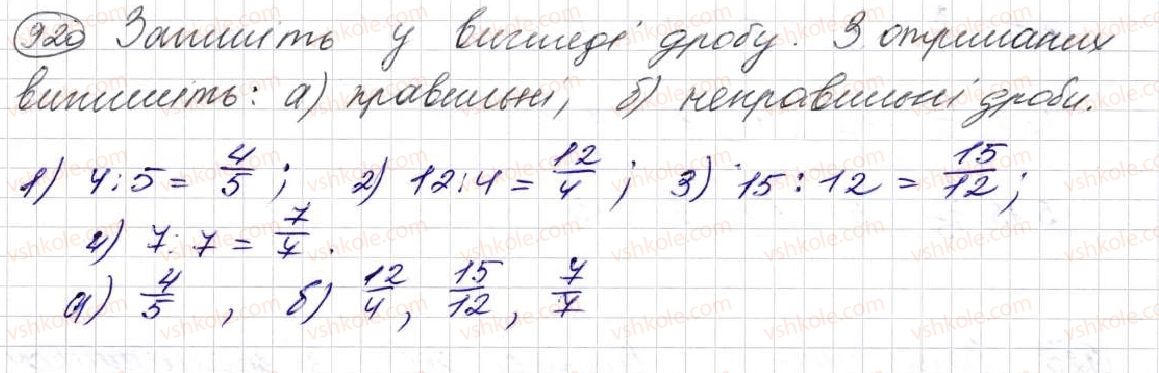 920 Запишіть у вигляді дробу. З отриманих
випишіть: а) правильні, б) неправильні дроби.
1) 4:5 = 4/5 ; 2) 12:4 = 12/4 ; 3) 15:12 = 15/12 ;
4) 7:7 = 7/7 .
а) 4/5 , б) 12/4 , 15/12 , 7/7